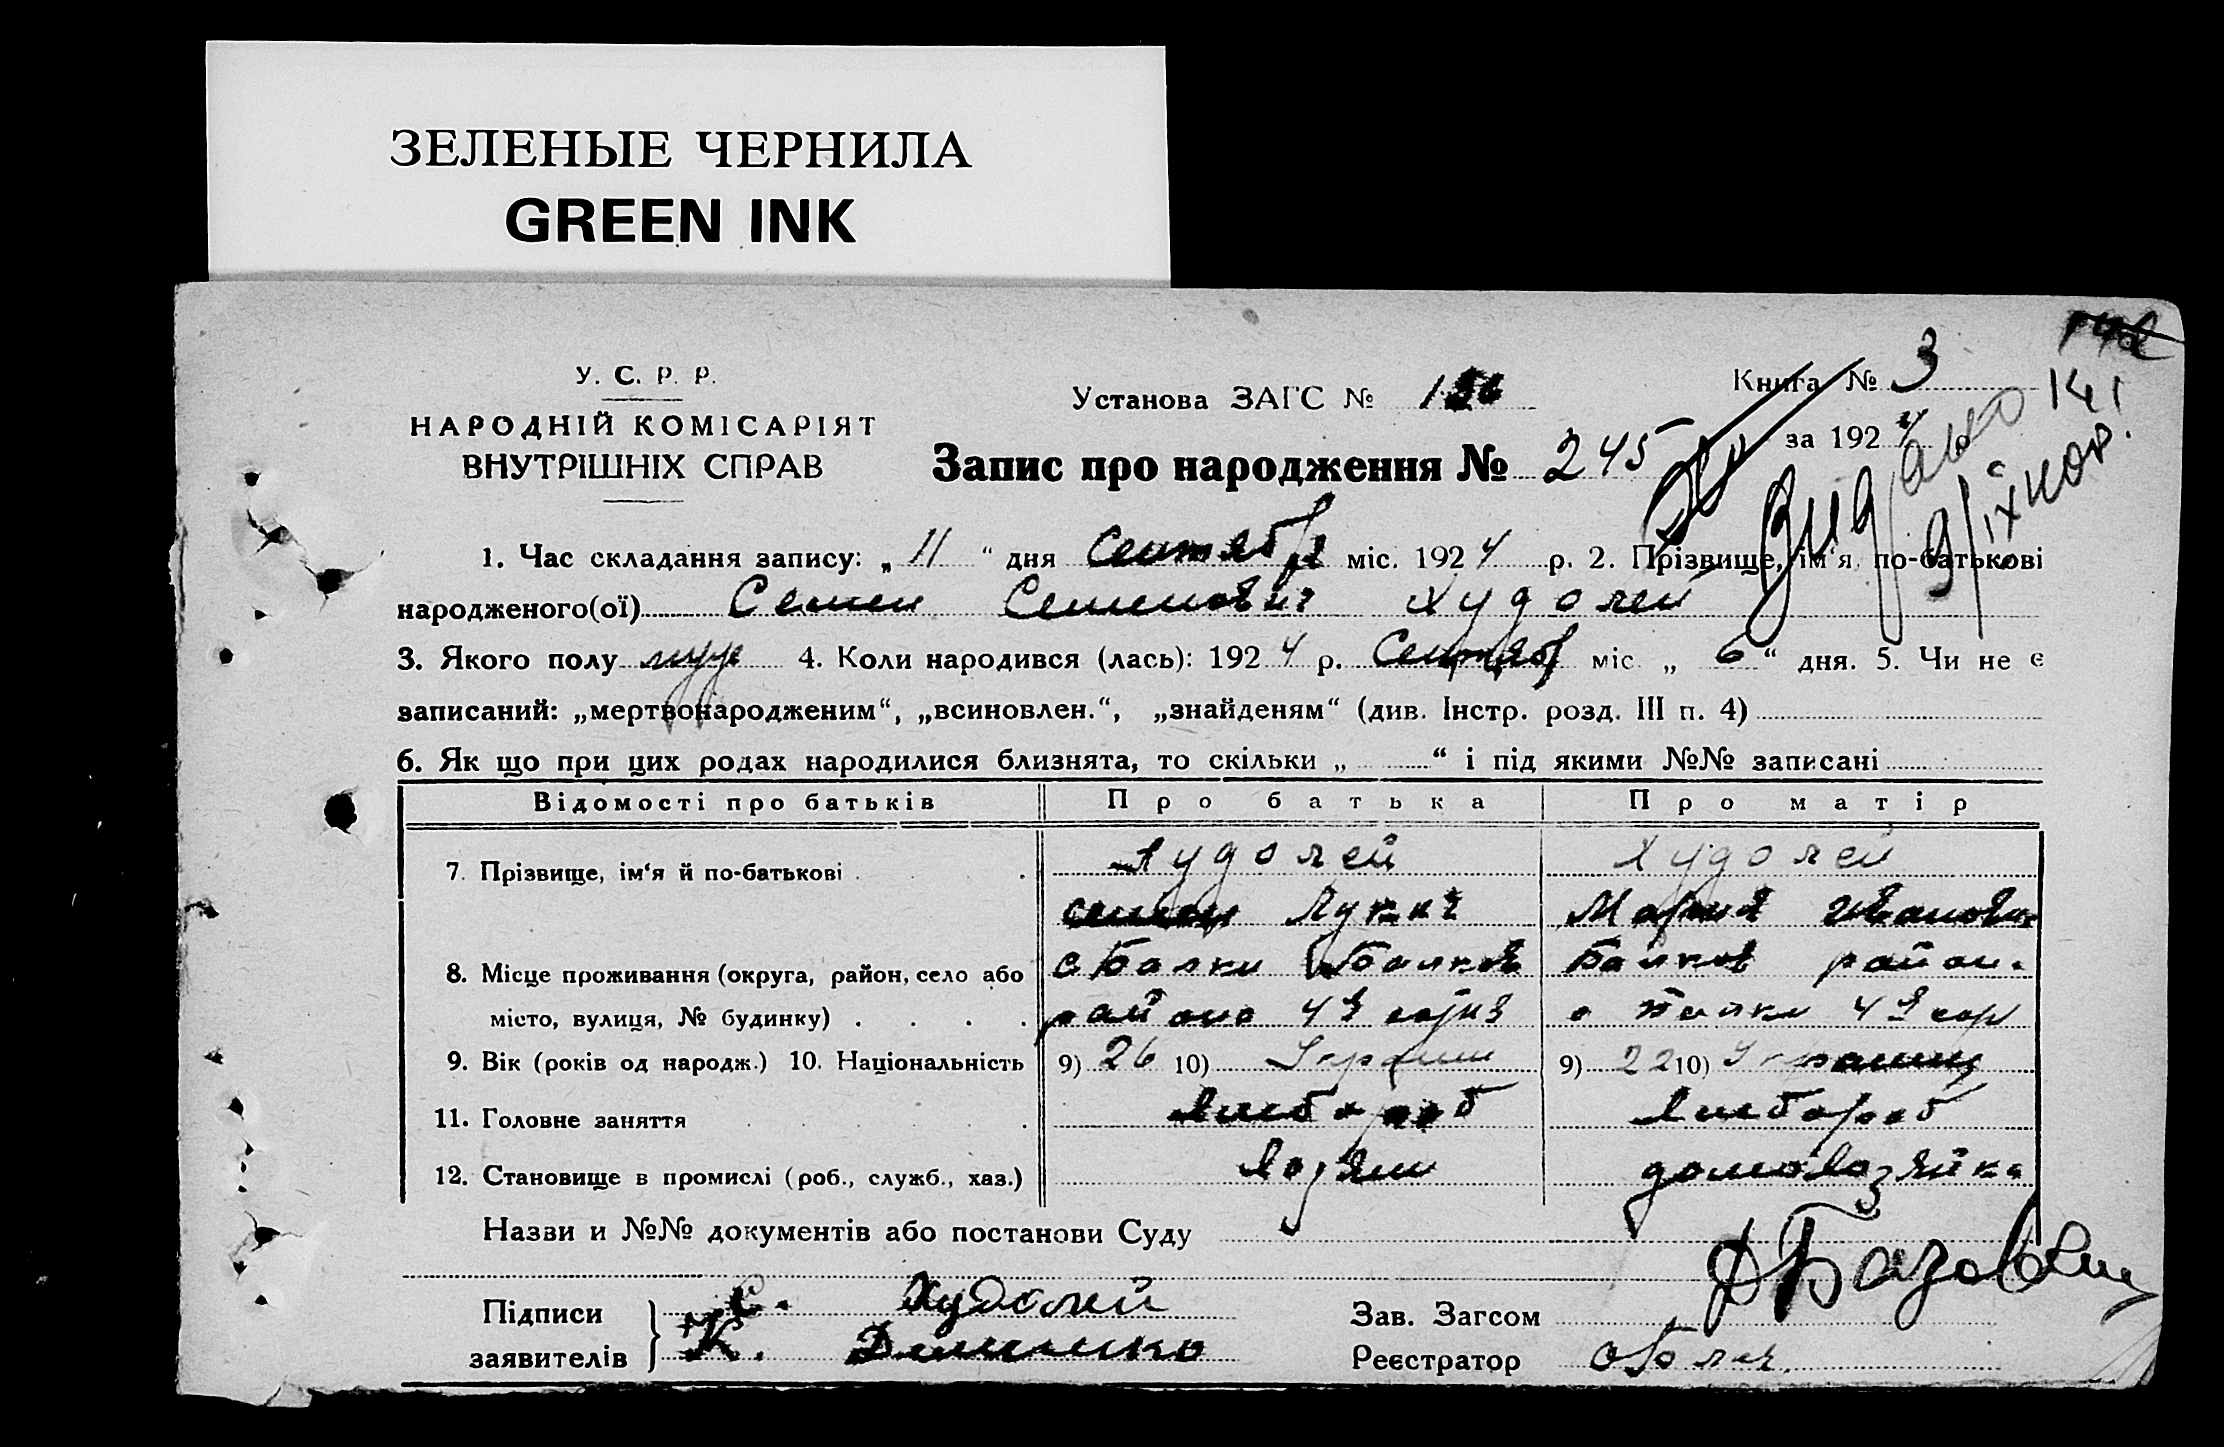 ЗЕЛЕНЫЕ ЧЕРНИЛА
GREEN INK
У. С. Р. Р.
НАРОДНІЙ КОМІСАРІЯТ
ВНУТРІШНІХ СПРАВ
Установа ЗАГС №
Книга № 3
за 1924
Запис про народження № 245
1. Час складання запису: „ 11 “ дня Сентября міс. 1924 р. 2. Прізвище, ім‘я, по-батькові
народженого(ої) Семен Семенович Худолей
3. Якого полу муж 4. Коли народився (лась): 1924 р. Сентяб міс. „ 6 “ дня. 5. Чи не є
записаний: „мертвонародженим“, „всиновлен.“, „знайденям“ (див. Інстр. розд. III п. 4)
6. Як що при цих родах народилися близнята, то скільки „ “ і під якими №№ записані
Відомості про батьків Про батька Про матір
7. Прізвище, ім‘я й по-батькові Худолей Худолей
Семен Лукич Мария Ивановн
8. Місце проживання (округа, район, село або с Балки Балков Балков район
місто, вулиця, № будинку) района 4й с Балки 4й
9. Вік (років од народж.) 10. Національність 9) 26 10) Украин 9) 22 10) Украинц
11. Головне заняття Хлебороб Хлебороб
12. Становище в промислі (роб., служб., хаз.) Хозяин домохозяйка
Назви и №№ документів або постанови Суду
Підписи С. Худолей Зав. Загсом
заявителів К. Реєстратор